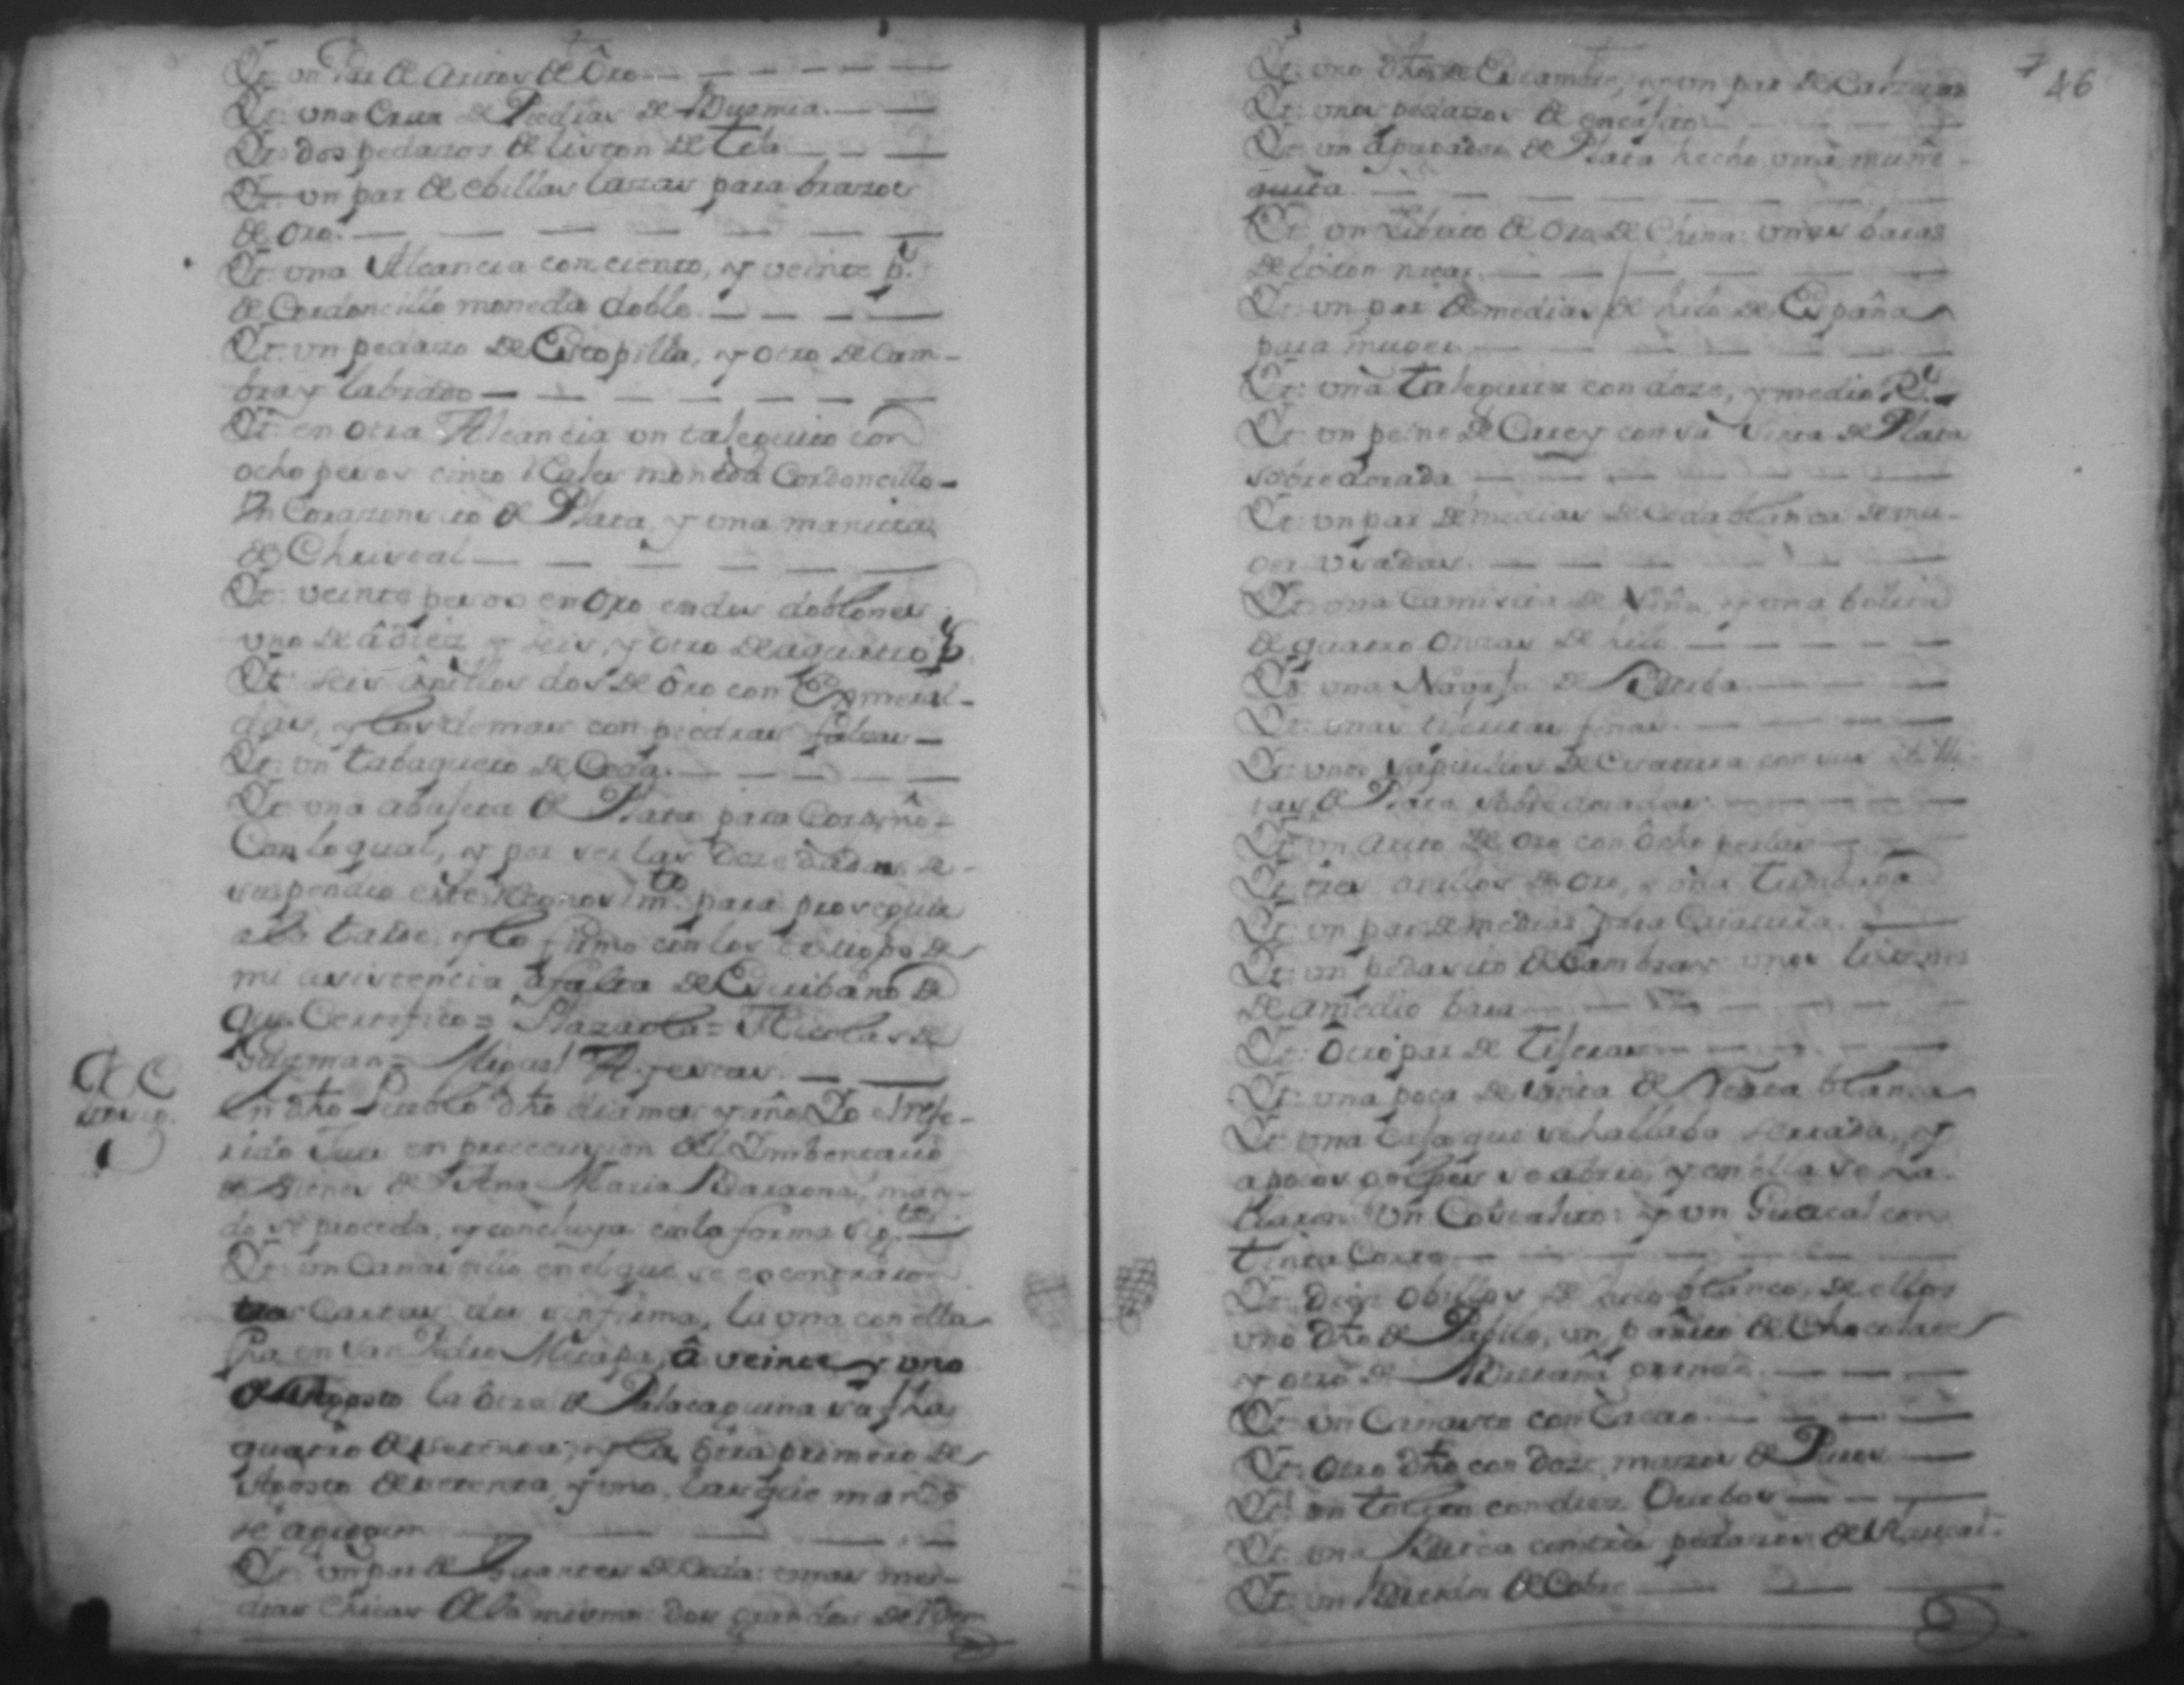 Yt. un Par de aritos de Óro
Yt. una Cruz de Piedras de Busmia.
Yt. dos pedazos de liston de tela
Yt. un par de ebillas lazas para brazos
de oro.
Yt. una Alcancia con ciento, y veinte p.s
de Cordoncillo moneda doble
Yt. un pedazo de Estopilla, y otro de Cam-
bray labrado
Yt. en otra Alcancia un taleguito con
ocho pesos cinco Reales moneda Cordoncillo
Un Corazonsito de Plata, y una manita
de Christal
Yt. veinte pesos en Oro en dos doblones
uno de â diez y seis, y otro de aquatro p.s
Yt. seis ânillos dos de ôro con Esmeral-
das, y los demas con piedras falsas
Yt. un tabaquero de Ceda.
Yt. una abujera de Plata para Corpiño
Con lo qual, y por ser las Doze dadas se
suspendio este Reconosim.to para proseguir
a la tarde, y lo firmo con los testigos de
mi asistencia âfalta de Escribano de
que Certifico = Plazaola = Nicolas de
Guzman = Miguel Ayestas.
En dho Pueblo dho dia mes y año Yo el refe-
rido Jues en prosecucion del Ymbentario
de bienes de Ana Maria Baraona, man-
do se proceda, y concluya en la forma sig.te
Yt. un Canastillo en el que se encontraron
tres Cartas dos sin firma, la una con ella
fha en San Pedro Metapa, â veinte y uno
de Agosto la ôtra de Palacaguina su fha
quatro de setenta, y la ôtra primero de
Agosto de setenta y uno, las que mando
se agreguen
Yt. un par de Guantes de Ceda: unas me-
dias chicas de la misma: dos grandes de Yden
46
Yt. uno dho de Escambr, y un par de Calzetas
Yt. unos pedazos de encajito
Yt. un apretador de Plata hecho una muñe-
quita
Yt. un Librito de Oro de China: unas baras
de liston nuebas
Yt. un par de medias de hilo de España
para muger
Yt. una taleguita con doze, y medio R.s
Yt. un peine de Carey con su Sinta de Plata
sobredorada
Yt. un par de medias de Ceda blanca de mu-
ger usadas.
Yt. una Camisita de Niña, y una bolita
de quatro Onzas de hilo
Yt. una Naguja de
Yt. unas tijeras finas
Yt. unos Sapatillos de Criatura con sus ebilli-
tas, de Plata sobredoradas
Yt. un arito de oro con ôcho perlas
Yt. tres anillos de oro, y una tumbaga
Yt. un par de medias para Criatura.
Yt. un pedasito de Cambray unos listones
de amedio bara
Yt. Ôtro par de tijeras
Yt. una poca de sinta de Neata blanca
Yt. una Caja que se hallaba serrada, y
apocos golpes se abrio, y en ella se ha-
llaron: Un Costalito: y un Guacal con
tinta Corte
Yt. diez obillos de hilo blanco, de ellos
uno dho de Pabilo, un pañito de Chocolate
y otro de Bretaña
Yt. un Canasto con Cacao
Yt. Otro dho con doze mazos de Puros
Yt. un tolito con diez Ouebos
Yt. una Petaca con tres pedazos de
Yt. un de Cobre